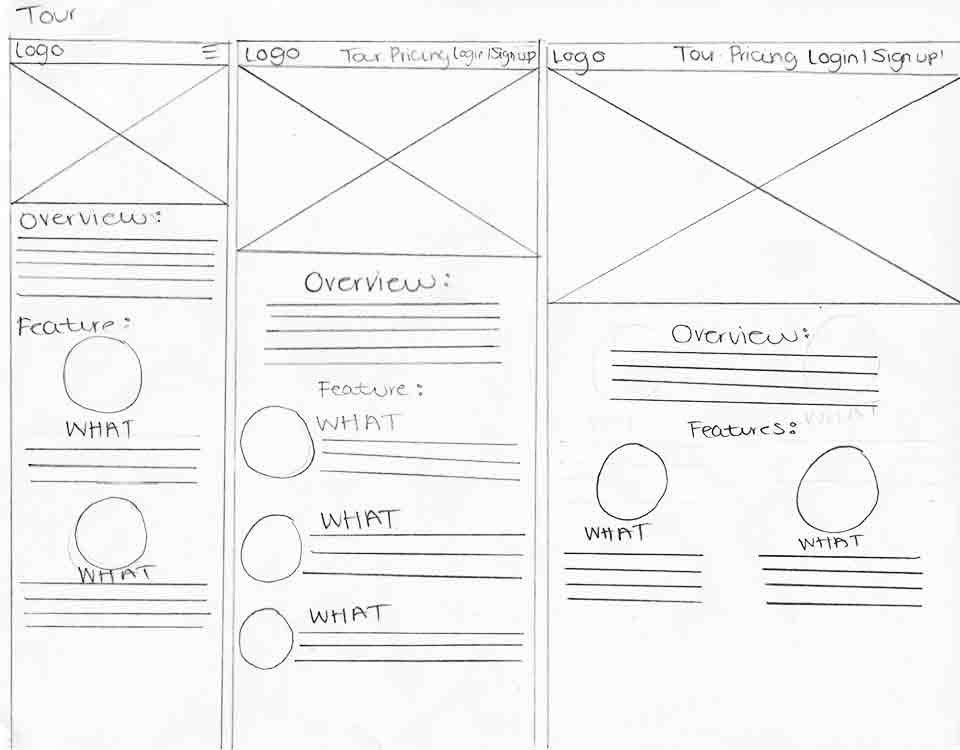 Tour
Logo
Overview:
Feature:
WHAT
WHAT
Logo Tour Pricing Login | Sign up
Overview:
Feature:
WHAT
WHAT
WHAT
Logo Tour Pricing Login | Sign up
Overview:
Features:
WHAT
WHAT
WHAT